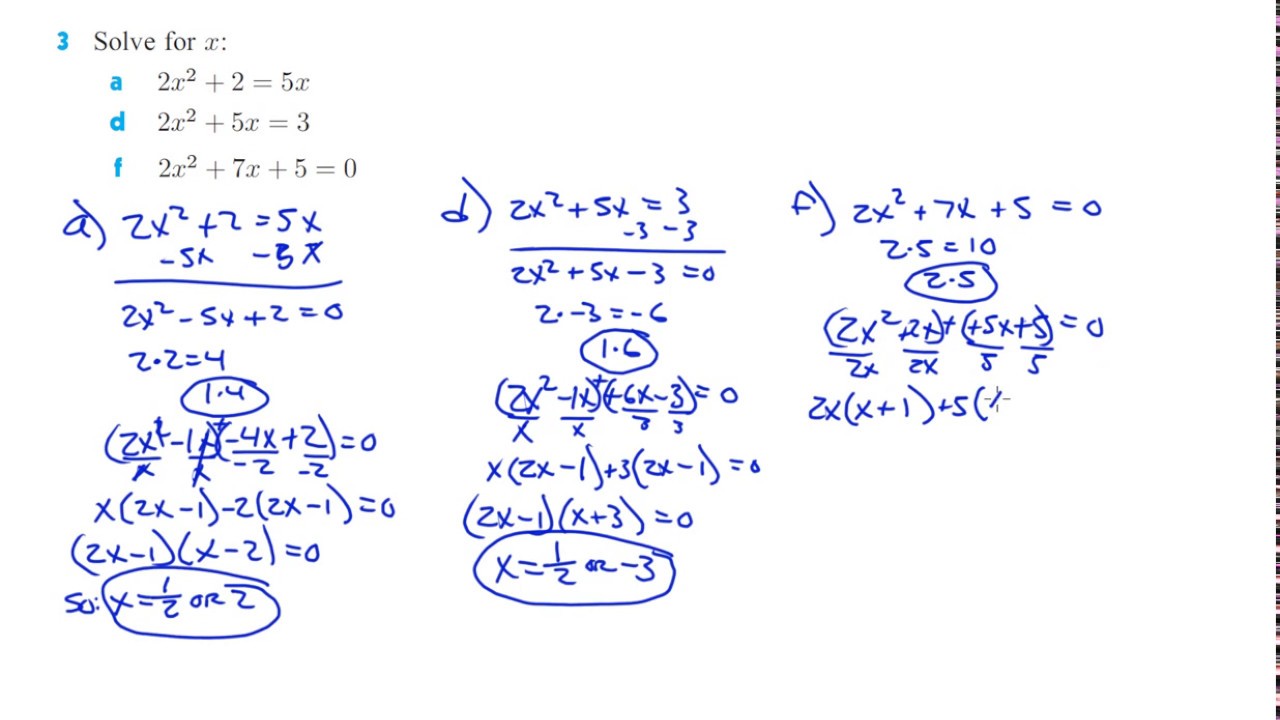 3 Solve for x:
a 2x² + 2 = 5x
d 2x² + 5x = 3
f 2x² + 7x + 5 = 0
a) 2x² + 2 = 5x
- 5x - 5x
2x² - 5x + 2 = 0
2 · 2 = 4
1 · 4
(2x² - 1x) + (-4x + 2) = 0
x x -2 -2
x(2x - 1) - 2(2x - 1) = 0
(2x - 1)(x - 2) = 0
So: x = 1/2 or 2
d) 2x² + 5x = 3
- 3 - 3
2x² + 5x - 3 = 0
2 · -3 = -6
1 · 6
(2x² - 1x) + (+6x - 3) = 0
x x 3 3
x(2x - 1) + 3(2x - 1) = 0
(2x - 1)(x + 3) = 0
x = 1/2 or -3
f) 2x² + 7x + 5 = 0
2 · 5 = 10
2 · 5
(2x² + 2x) + (+5x + 5) = 0
2x 2x 5 5
2x(x + 1) + 5(